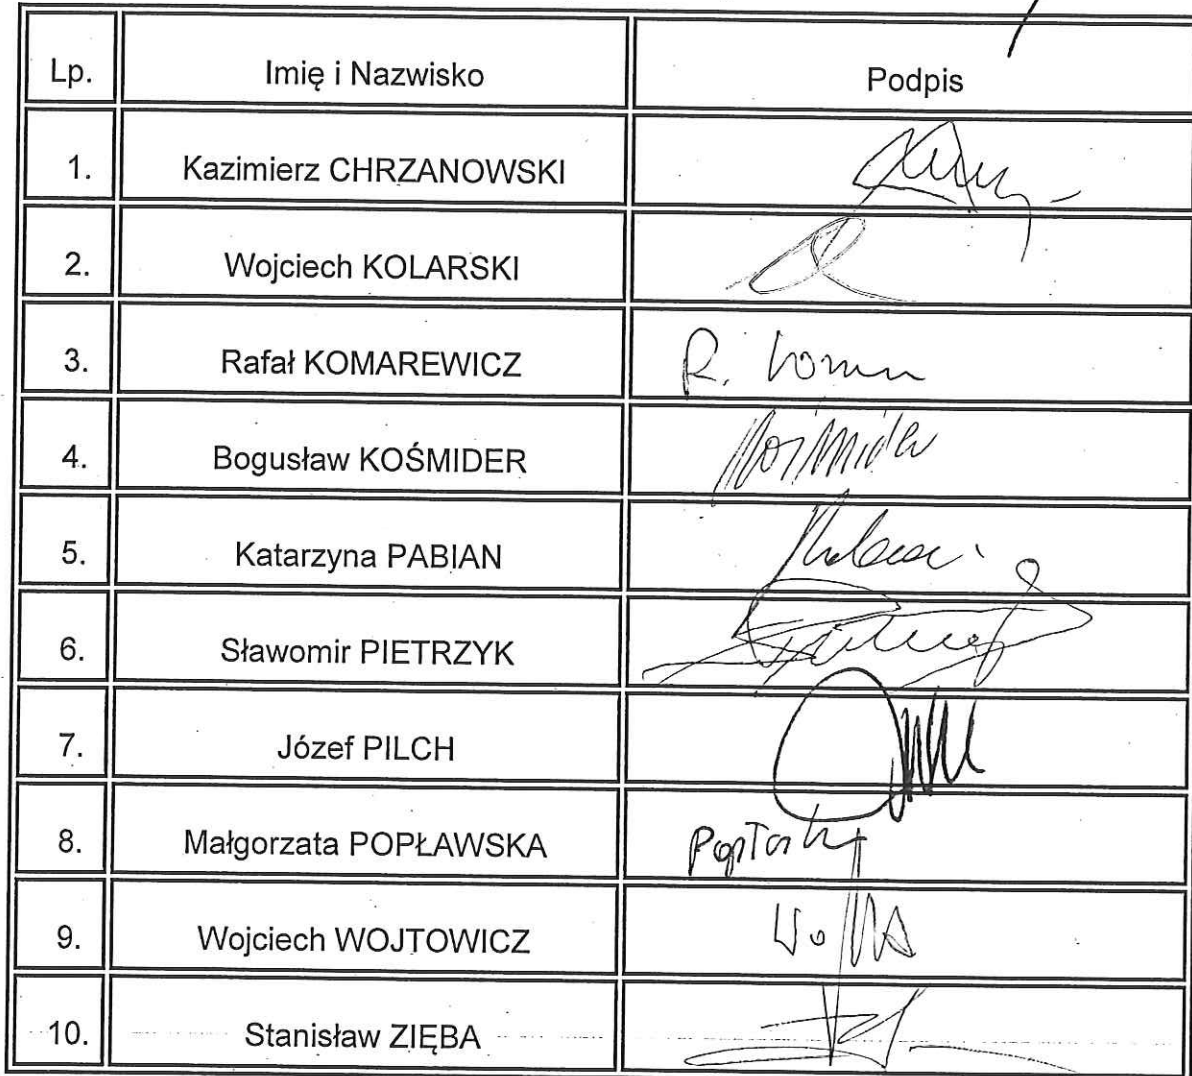 Lp. Imię i Nazwisko Podpis
1. Kazimierz CHRZANOWSKI
2. Wojciech KOLARSKI
3. Rafał KOMAREWICZ R.
4. Bogusław KOŚMIDER Kośmider
5. Katarzyna PABIAN
6. Sławomir PIETRZYK
7. Józef PILCH
8. Małgorzata POPŁAWSKA
9. Wojciech WOJTOWICZ
10. Stanisław ZIĘBA